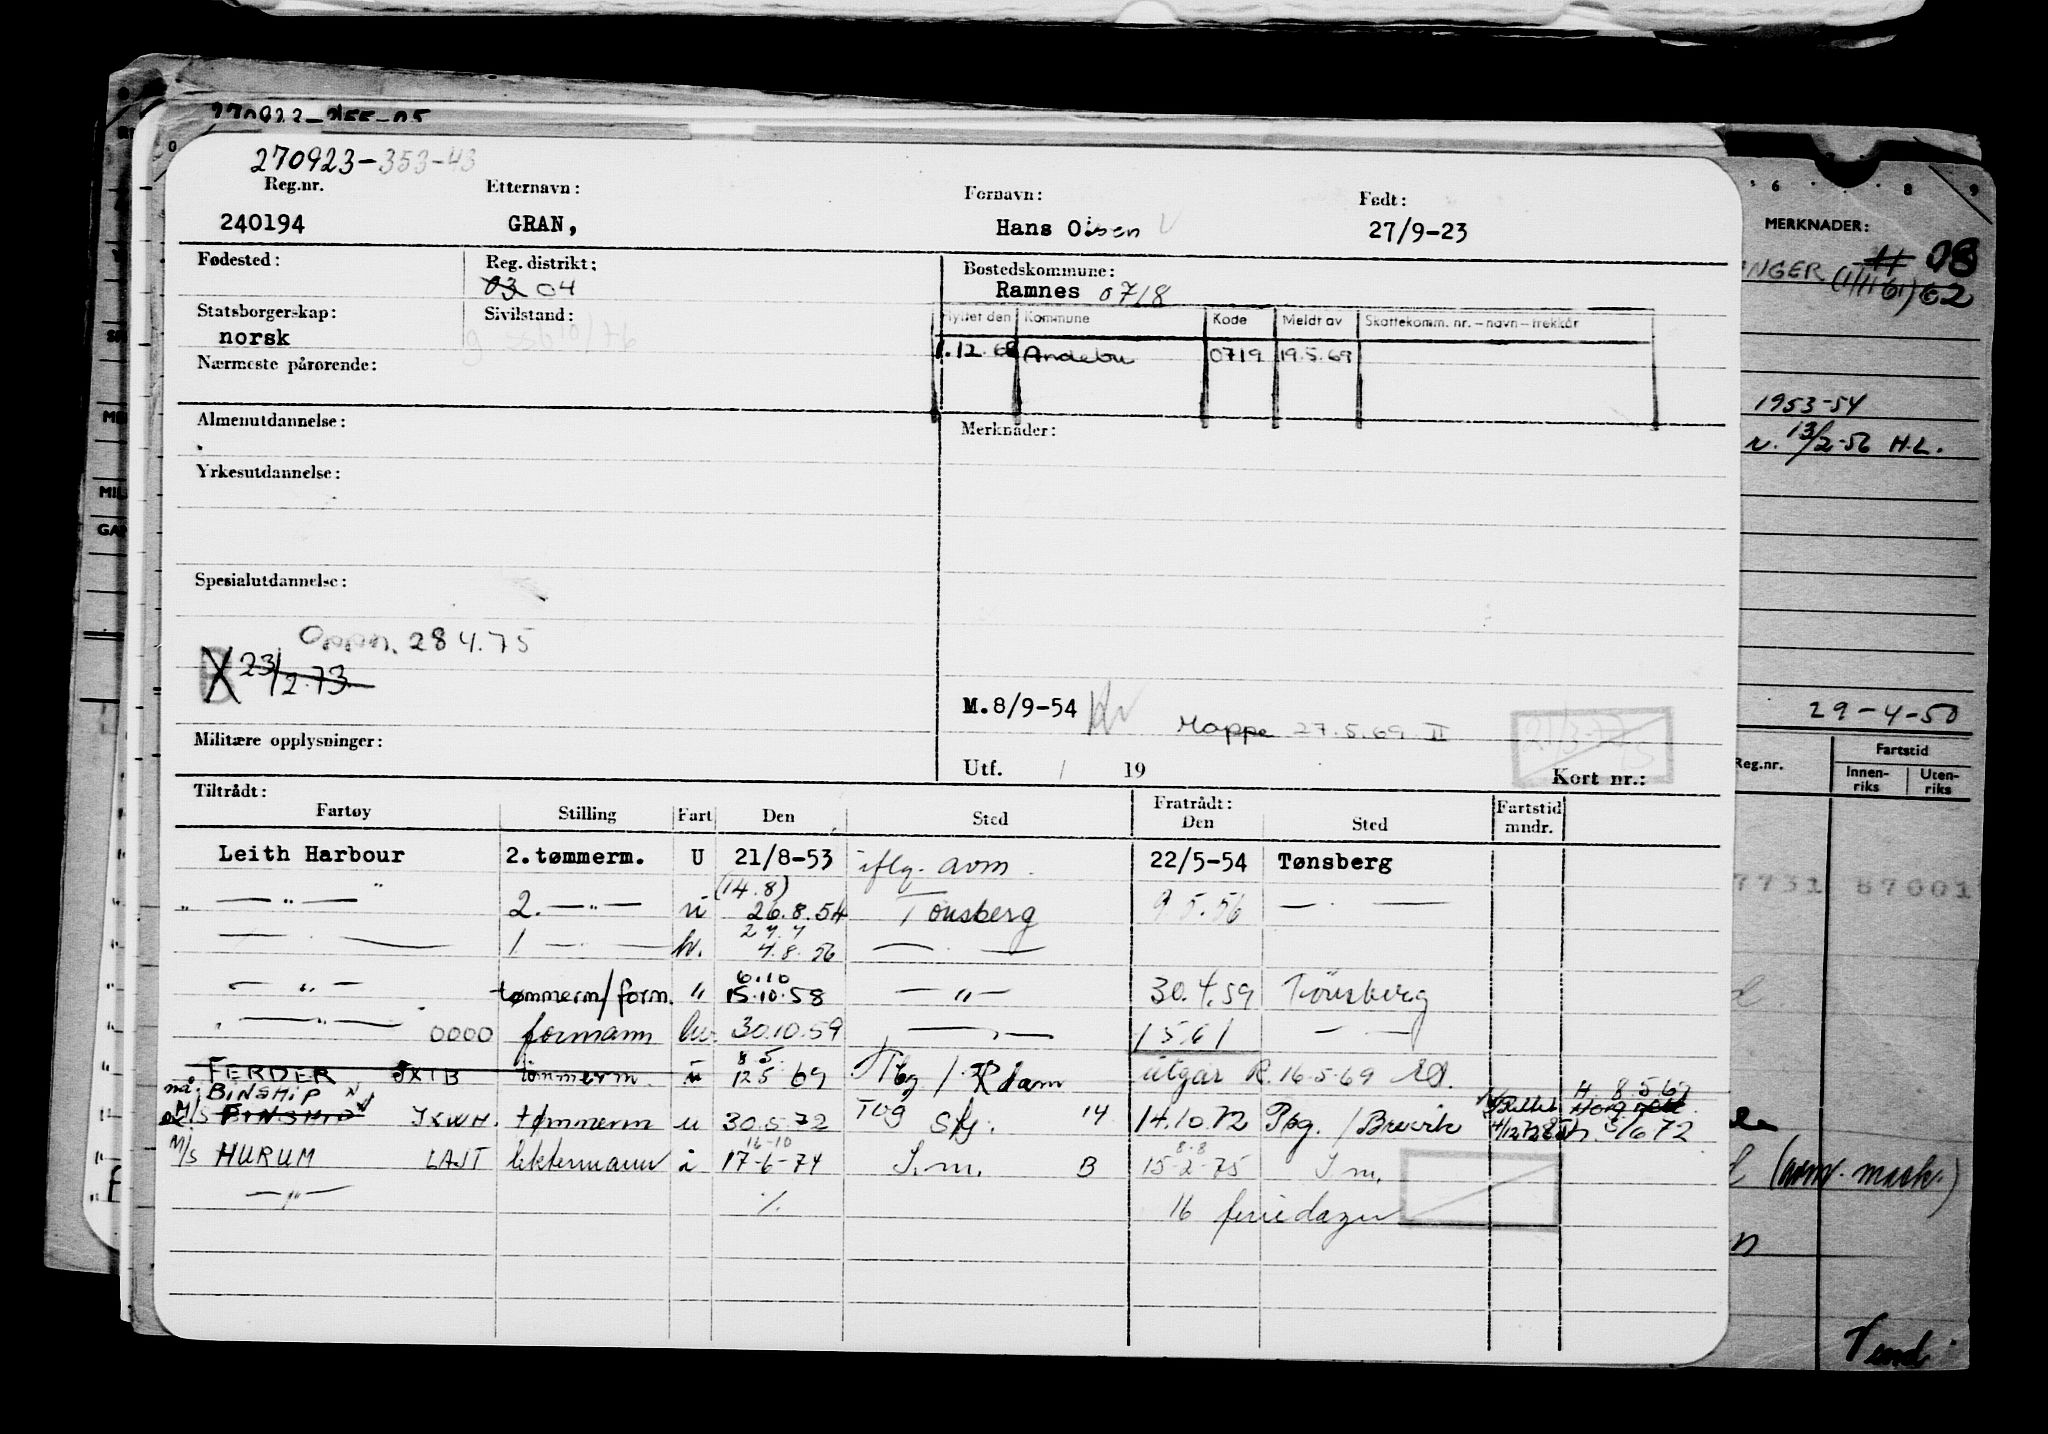 270923-353-43
Reg.nr. Etternavn: Fornavn: Født:
240194 GRAN, Hans Olsen 27/9-23
Fødested: Reg. distrikt: Bostedskommune:
03 04 Ramnes 0718
Statsborgerskap: Sivilstand: Flyttet den Kommune Kode Meldt av Skattekomm. nr. – navn – trekkår
norsk
1.12.68 Andebu 0719 19.5.69
Nærmeste pårørende:
Almenutdannelse: Merknader:
Yrkesutdannelse:
Spesialutdannelse:
Oppn. 28 4.75
23/2.73
M.8/9-54
Mappe 27.5.69 II
Militære opplysninger:
Utf. / 19 Kort nr.:
Tiltrådt: Fratrådt:
Fartøy Stilling Fart Den Sted Den Sted Fartstid mndr.
Leith Harbour 2.tømmerm. U 21/8-53 iflg. avm 22/5-54 Tønsberg
(14.8)
— " — 2. — " — u 26.8.54 Tønsberg 9 5.56 — . —
29.7
— . — 1 — . — hv. 4.8.56 — . —
6.10
— " — tømmerm/form. " 15.10.58 — " — 30.4.59 Tönsberg
— " — 0000 formann hv. 30.10.59 — " — 1 5 61 — . —
8 5.
FERDER JXTB tømmerm. u 12 5 69 Tbg / Rdam utgår R. 16-5-69
nå: BINSHIP H 8 5 69
M/S BINSHIP JXWH. tømmerm u 30.5.72 14 14.10.72 Pbg. / Brevik 5/6 72
16-10 8-8
M/S HURUM LAJT lektermann i 17-6-74 I.m. B 15-2-75 I m.
— " — 16 feriedager
MERKNADER:
NGER (1/11 61) 62
08
1953-54
13/2-56 H.L.
29-4-50
Reg.nr. Fartstid
Innen-riks Uten-riks
7731 87001
(avm. mask.)
Vend